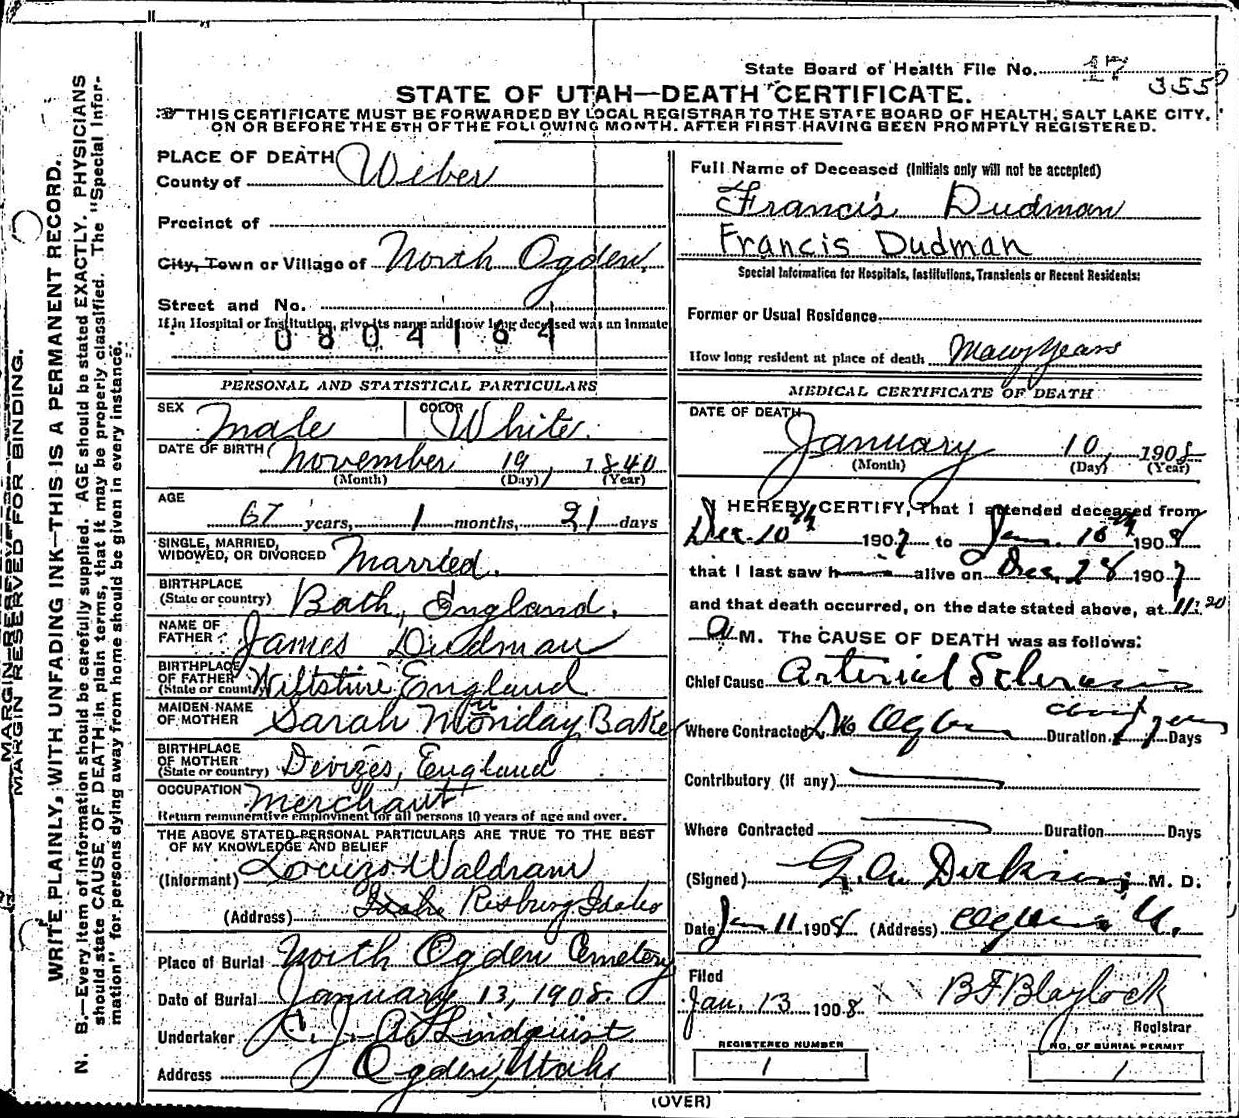 State Board of Health File No. 17
3550
STATE OF UTAH—DEATH CERTIFICATE.
THIS CERTIFICATE MUST BE FORWARDED BY LOCAL REGISTRAR TO THE STATE BOARD OF HEALTH, SALT LAKE CITY,
ON OR BEFORE THE 5TH OF THE FOLLOWING MONTH. AFTER FIRST HAVING BEEN PROMPTLY REGISTERED.
MARGIN RESERVED FOR BINDING.
MARGIN RESERVED FOR BINDING.
WRITE PLAINLY, WITH UNFADING INK—THIS IS A PERMANENT RECORD.
N. B.—Every item of information should be carefully supplied. AGE should be stated EXACTLY. PHYSICIANS
should state CAUSE OF DEATH in plain terms, that it may be properly classified. The "Special Infor-
mation" for persons dying away from home should be given in every instance.
PLACE OF DEATH
County of Weber
Precinct of
City, Town or Village of North Ogden
Street and No.
If in Hospital or Institution, give its name and how long deceased was an inmate
0804164
PERSONAL AND STATISTICAL PARTICULARS
SEX Male COLOR White.
DATE OF BIRTH November 19, 1840
(Month) (Day) (Year)
AGE
67 years, 1 months, 21 days
SINGLE, MARRIED,
WIDOWED, OR DIVORCED Married.
BIRTHPLACE
(State or country) Bath, England.
NAME OF
FATHER James Dudman
BIRTHPLACE
OF FATHER
(State or country) Wiltshire, England
MAIDEN NAME
OF MOTHER Sarah Monday Bake
BIRTHPLACE
OF MOTHER
(State or country) Devizes, England
OCCUPATION Merchant
Return remunerative employment for all persons 10 years of age and over.
THE ABOVE STATED PERSONAL PARTICULARS ARE TRUE TO THE BEST
OF MY KNOWLEDGE AND BELIEF
(Informant) Lorenzo Waldram
(Address) Idaho Rexburg Idaho
Place of Burial North Ogden Cemetery
Date of Burial January 13, 1908.
Undertaker C. J. A. Lindquist
Address Ogden, Utah
Full Name of Deceased (Initials only will not be accepted)
Francis Dudman
Francis Dudman
Special Information for Hospitals, Institutions, Transients or Recent Residents:
Former or Usual Residence
How long resident at place of death Many Years
MEDICAL CERTIFICATE OF DEATH
DATE OF DEATH
January 10, 1908
(Month) (Day) (Year)
I HEREBY CERTIFY, That I attended deceased from
Dec. 10th 1907 to Jan. 10th 1908
that I last saw h alive on Dec. 28 1907
and that death occurred, on the date stated above, at 11:20
A M. The CAUSE OF DEATH was as follows:
Chief Cause Arterial Sclerosis
Where Contracted No Ogden Duration Days
Contributory (if any)
Where Contracted Duration Days
(Signed) M. D.
Date Jan 11 1908 (Address) Ogden U.
Filed
Jan. 13 1908 B F Blaylock
Registrar
REGISTERED NUMBER
1
NO. OF BURIAL PERMIT
1
(OVER)